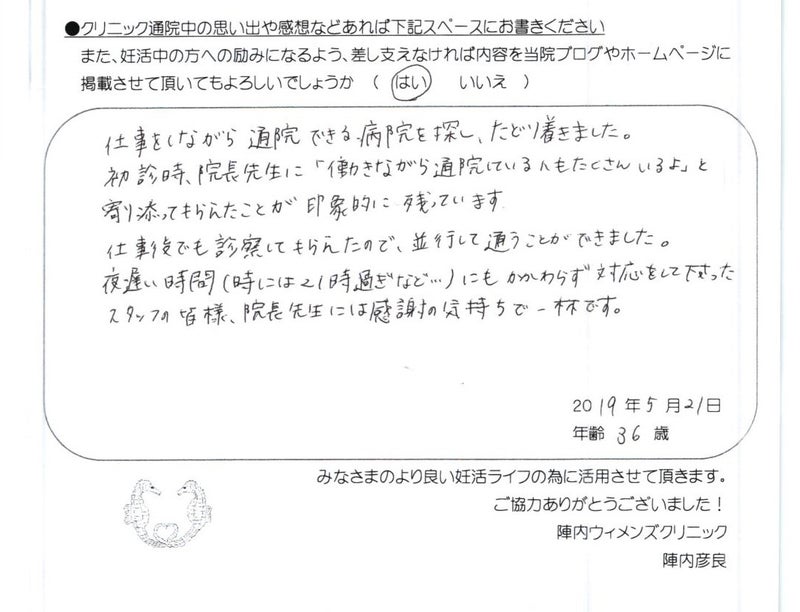 ●クリニック通院中の思い出や感想などあれば下記スペースにお書きください
また、妊活中の方への励みになるよう、差し支えなければ内容を当院ブログやホームページに
掲載させて頂いてもよろしいでしょうか （ はい いいえ ）
仕事をしながら 通院 できる 病院を探し、たどり着きました。
初診時、院長先生に「働きながら通院している人もたくさん いるよ」と
寄り添ってもらえたことが 印象的に 残っています
仕事後でも診察してもらえたので、並行して通うことができました。
夜遅い時間（時には21時過ぎなど…）にも かかわらず 対応をして下さった
スタッフの皆様、院長先生には感謝の気持ちで一杯です。
2019年5月21日
年齢 36 歳
みなさまのより良い妊活ライフの為に活用させて頂きます。
ご協力ありがとうございました！
陣内ウィメンズクリニック
陣内彦良